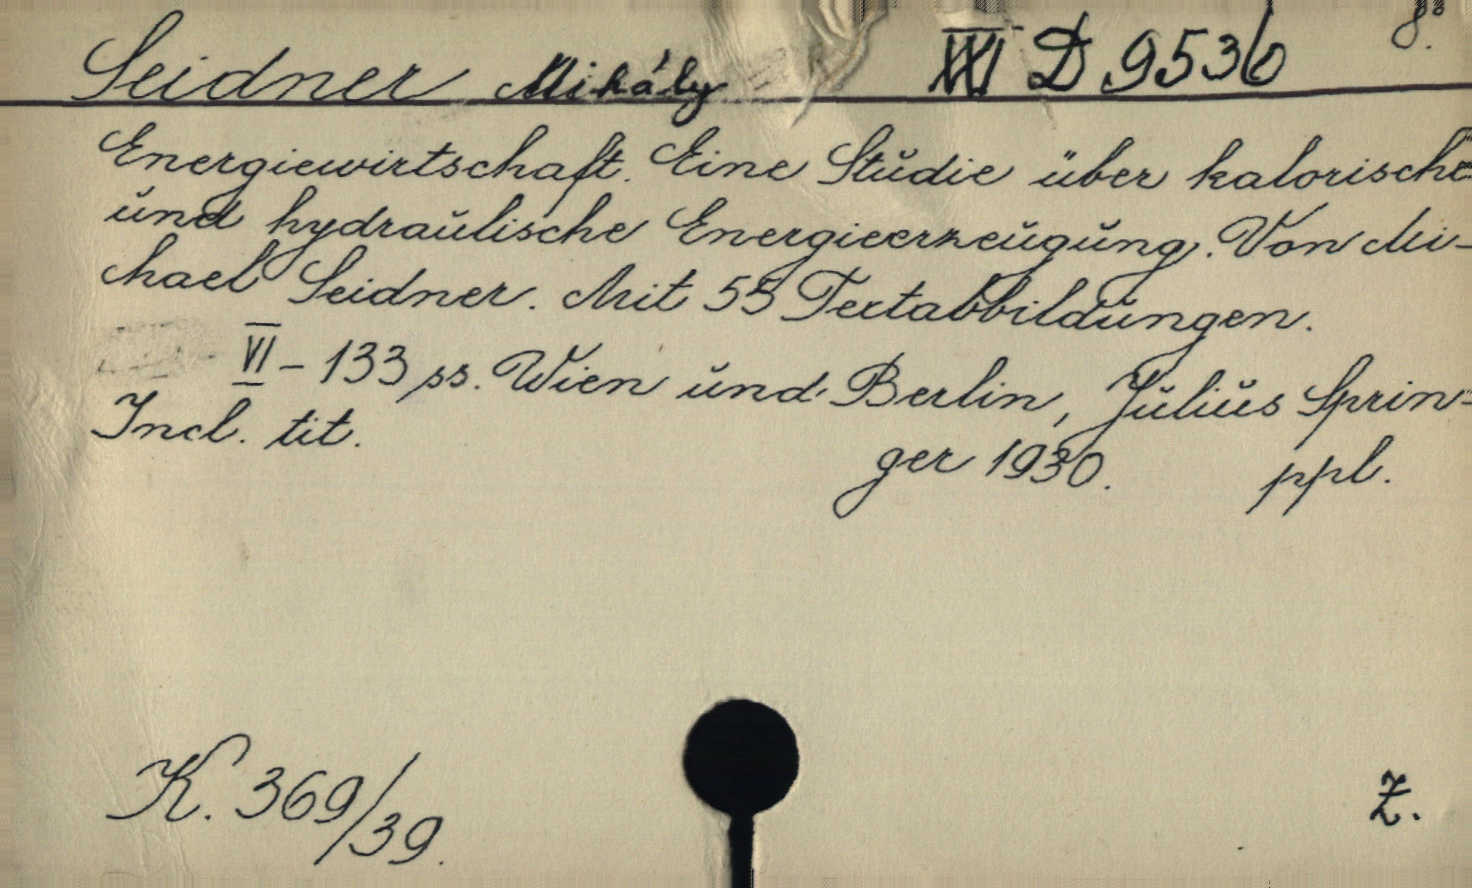 Seidner Mihály XXI D 9536 8°.
Energiewirtschaft. Eine Studie über kalorische
und hydraulische Energieerzeugung. Von Mi-
chael Seidner. Mit 55 Textabbildungen.
VI - 133 ss. Wien und Berlin, Julius Sprin-
Incl. tit.
ger 1930. ppl.
K. 369/39.
Z.